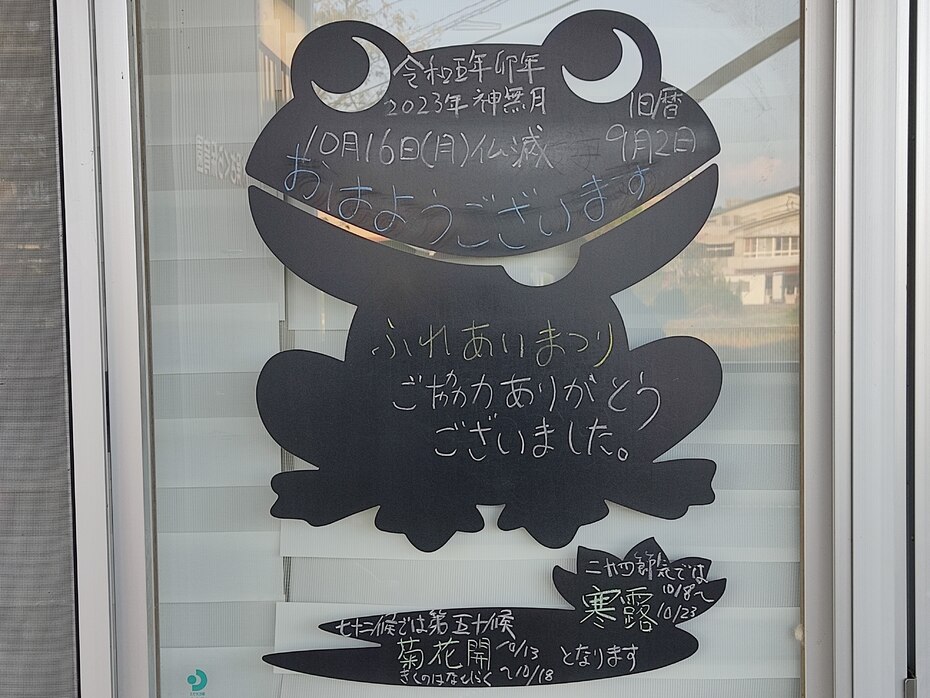 令和五年卯年
2023年神無月
旧暦
10月16日(月)仏滅
9月2日
おはようございます
ふれあいまつり
ご協力ありがとう
ございました。
二十四節気では
寒露
10/8~
10/23
七十二候では第五十候
菊花開
10/13
~10/18
きくのはなひらく
となります